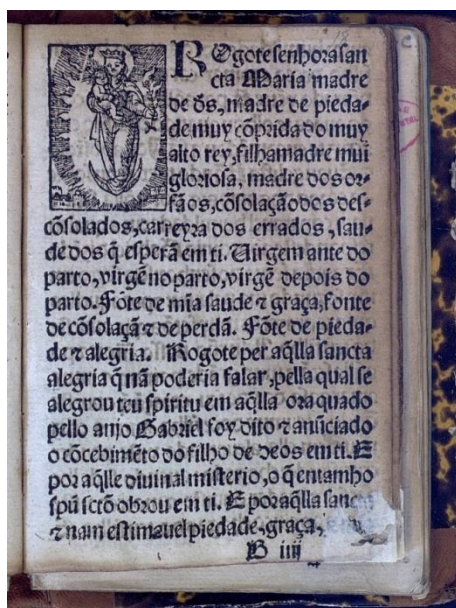 ROgote senhora san
cta Maria madre
de d̃s, madre de pieda-
de muy cõprida do muy
alto rey, filha madre mui
gloriosa, madre dos or-
fãos, cõsolação dos des-
cõsolados, carreyra dos errados, sau-
de dos q̃ esperã em ti. Uirgem ante do
parto, virgẽ no parto, virgẽ depois do
parto. Fõte de mĩa saude ⁊ graça, fonte
de cõsolaçã ⁊ de perdã. Fõte de pieda-
de ⁊ alegria. Rogote per aq̃lla sancta
alegria q̃ nã poderia falar, pella qual se
alegrou teu spiritu em aq̃lla ora quãdo
pello anjo Gabriel foy dito ⁊ anũciado
o cõcebimẽto do filho de deos em ti. E
por aq̃lle diuinal misterio, o q̃ entam ho
spũ sctõ obrou em ti. E por aq̃lla
⁊ nam estimauel piedade, graça,
B iiij